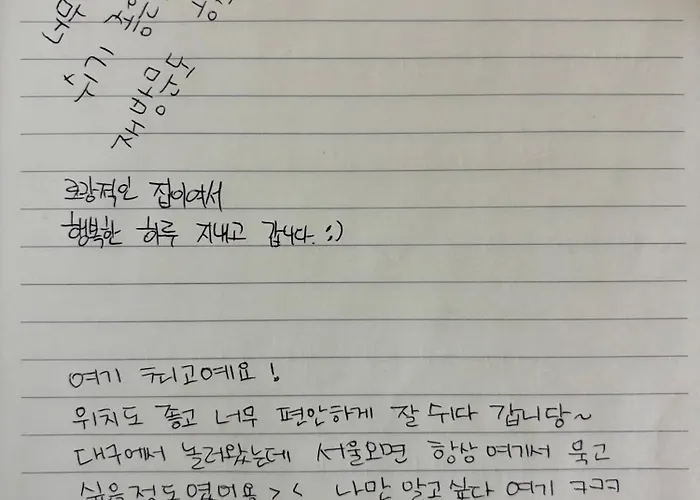 재방문
로맨적인 집이여서
행복한 하루 지내고 갑니다. :)
여기 최고예요!
위치도 좋고 너무 편안하게 잘 쉬다 갑니당~
대구에서 놀러왔는데 서울오면 항상 여기서 묵고
싶을정도였어용 >< 나만 알고싶다 여기 ㅋㅋㅋ